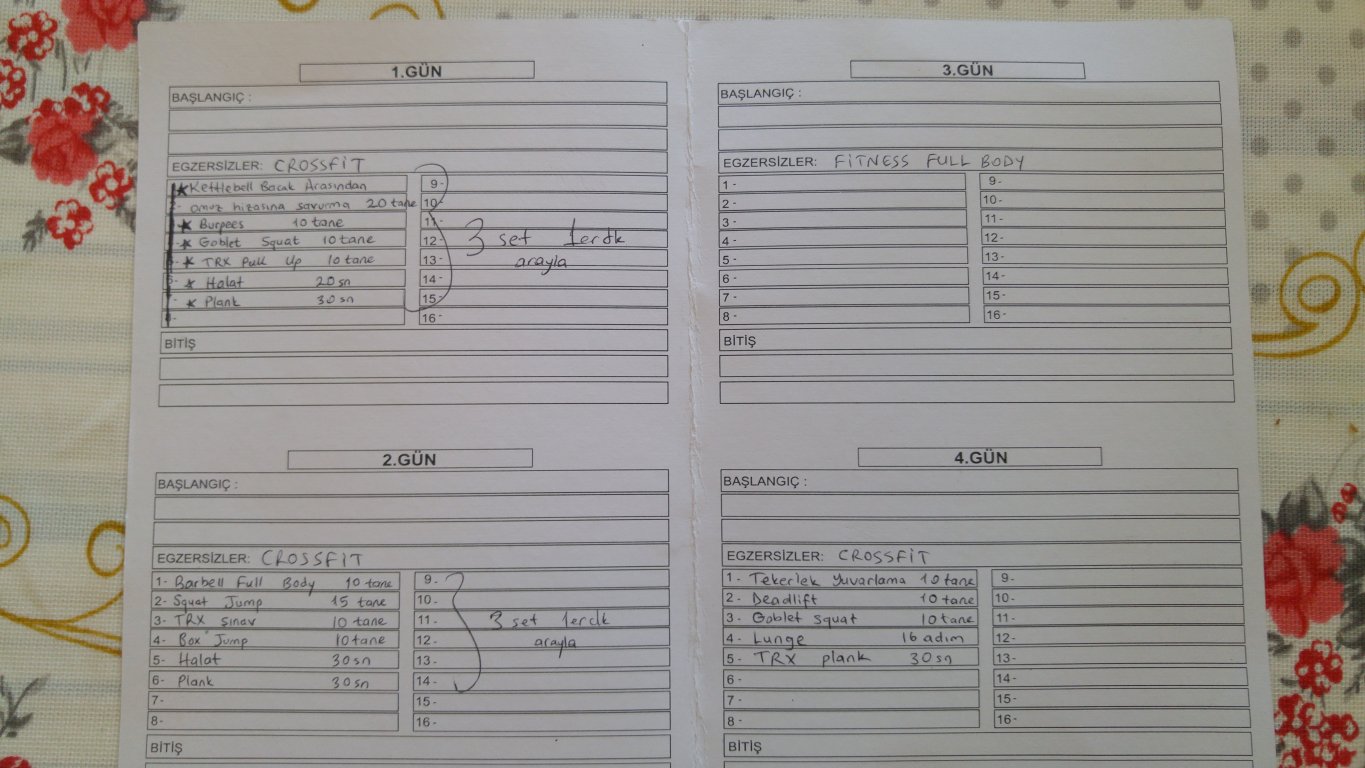 1.GÜN
BAŞLANGIÇ :
EGZERSİZLER: CROSSFİT
★ Kettlebell Bacak Arasından
2- omuz hizasına savurma 20 tane
★ Burpees 10 tane
★ Goblet Squat 10 tane
★ TRX Pull Up 10 tane
★ Halat 20 sn
★ Plank 30 sn
8-
9-
10-
11-
12-
13-
14-
15-
16-
3 set 1er dk
arayla
BİTİŞ
2.GÜN
BAŞLANGIÇ :
EGZERSİZLER: CROSSFİT
1- Barbell Full Body 10 tane
2- Squat Jump 15 tane
3- TRX Şınav 10 tane
4- Box Jump 10 tane
5- Halat 30 sn
6- Plank 30 sn
7-
8-
9-
10-
11-
12-
13-
14-
15-
16-
3 set 1er dk
arayla
BİTİŞ
3.GÜN
BAŞLANGIÇ :
EGZERSİZLER: FİTNESS FULL BODY
1-
2-
3-
4-
5-
6-
7-
8-
9-
10-
11-
12-
13-
14-
15-
16-
BİTİŞ
4.GÜN
BAŞLANGIÇ :
EGZERSİZLER: CROSSFİT
1- Tekerlek yuvarlama 10 tane
2- Deadlift 10 tane
3- Goblet squat 10 tane
4- Lunge 16 adım
5- TRX plank 30 sn
6-
7-
8-
9-
10-
11-
12-
13-
14-
15-
16-
BİTİŞ